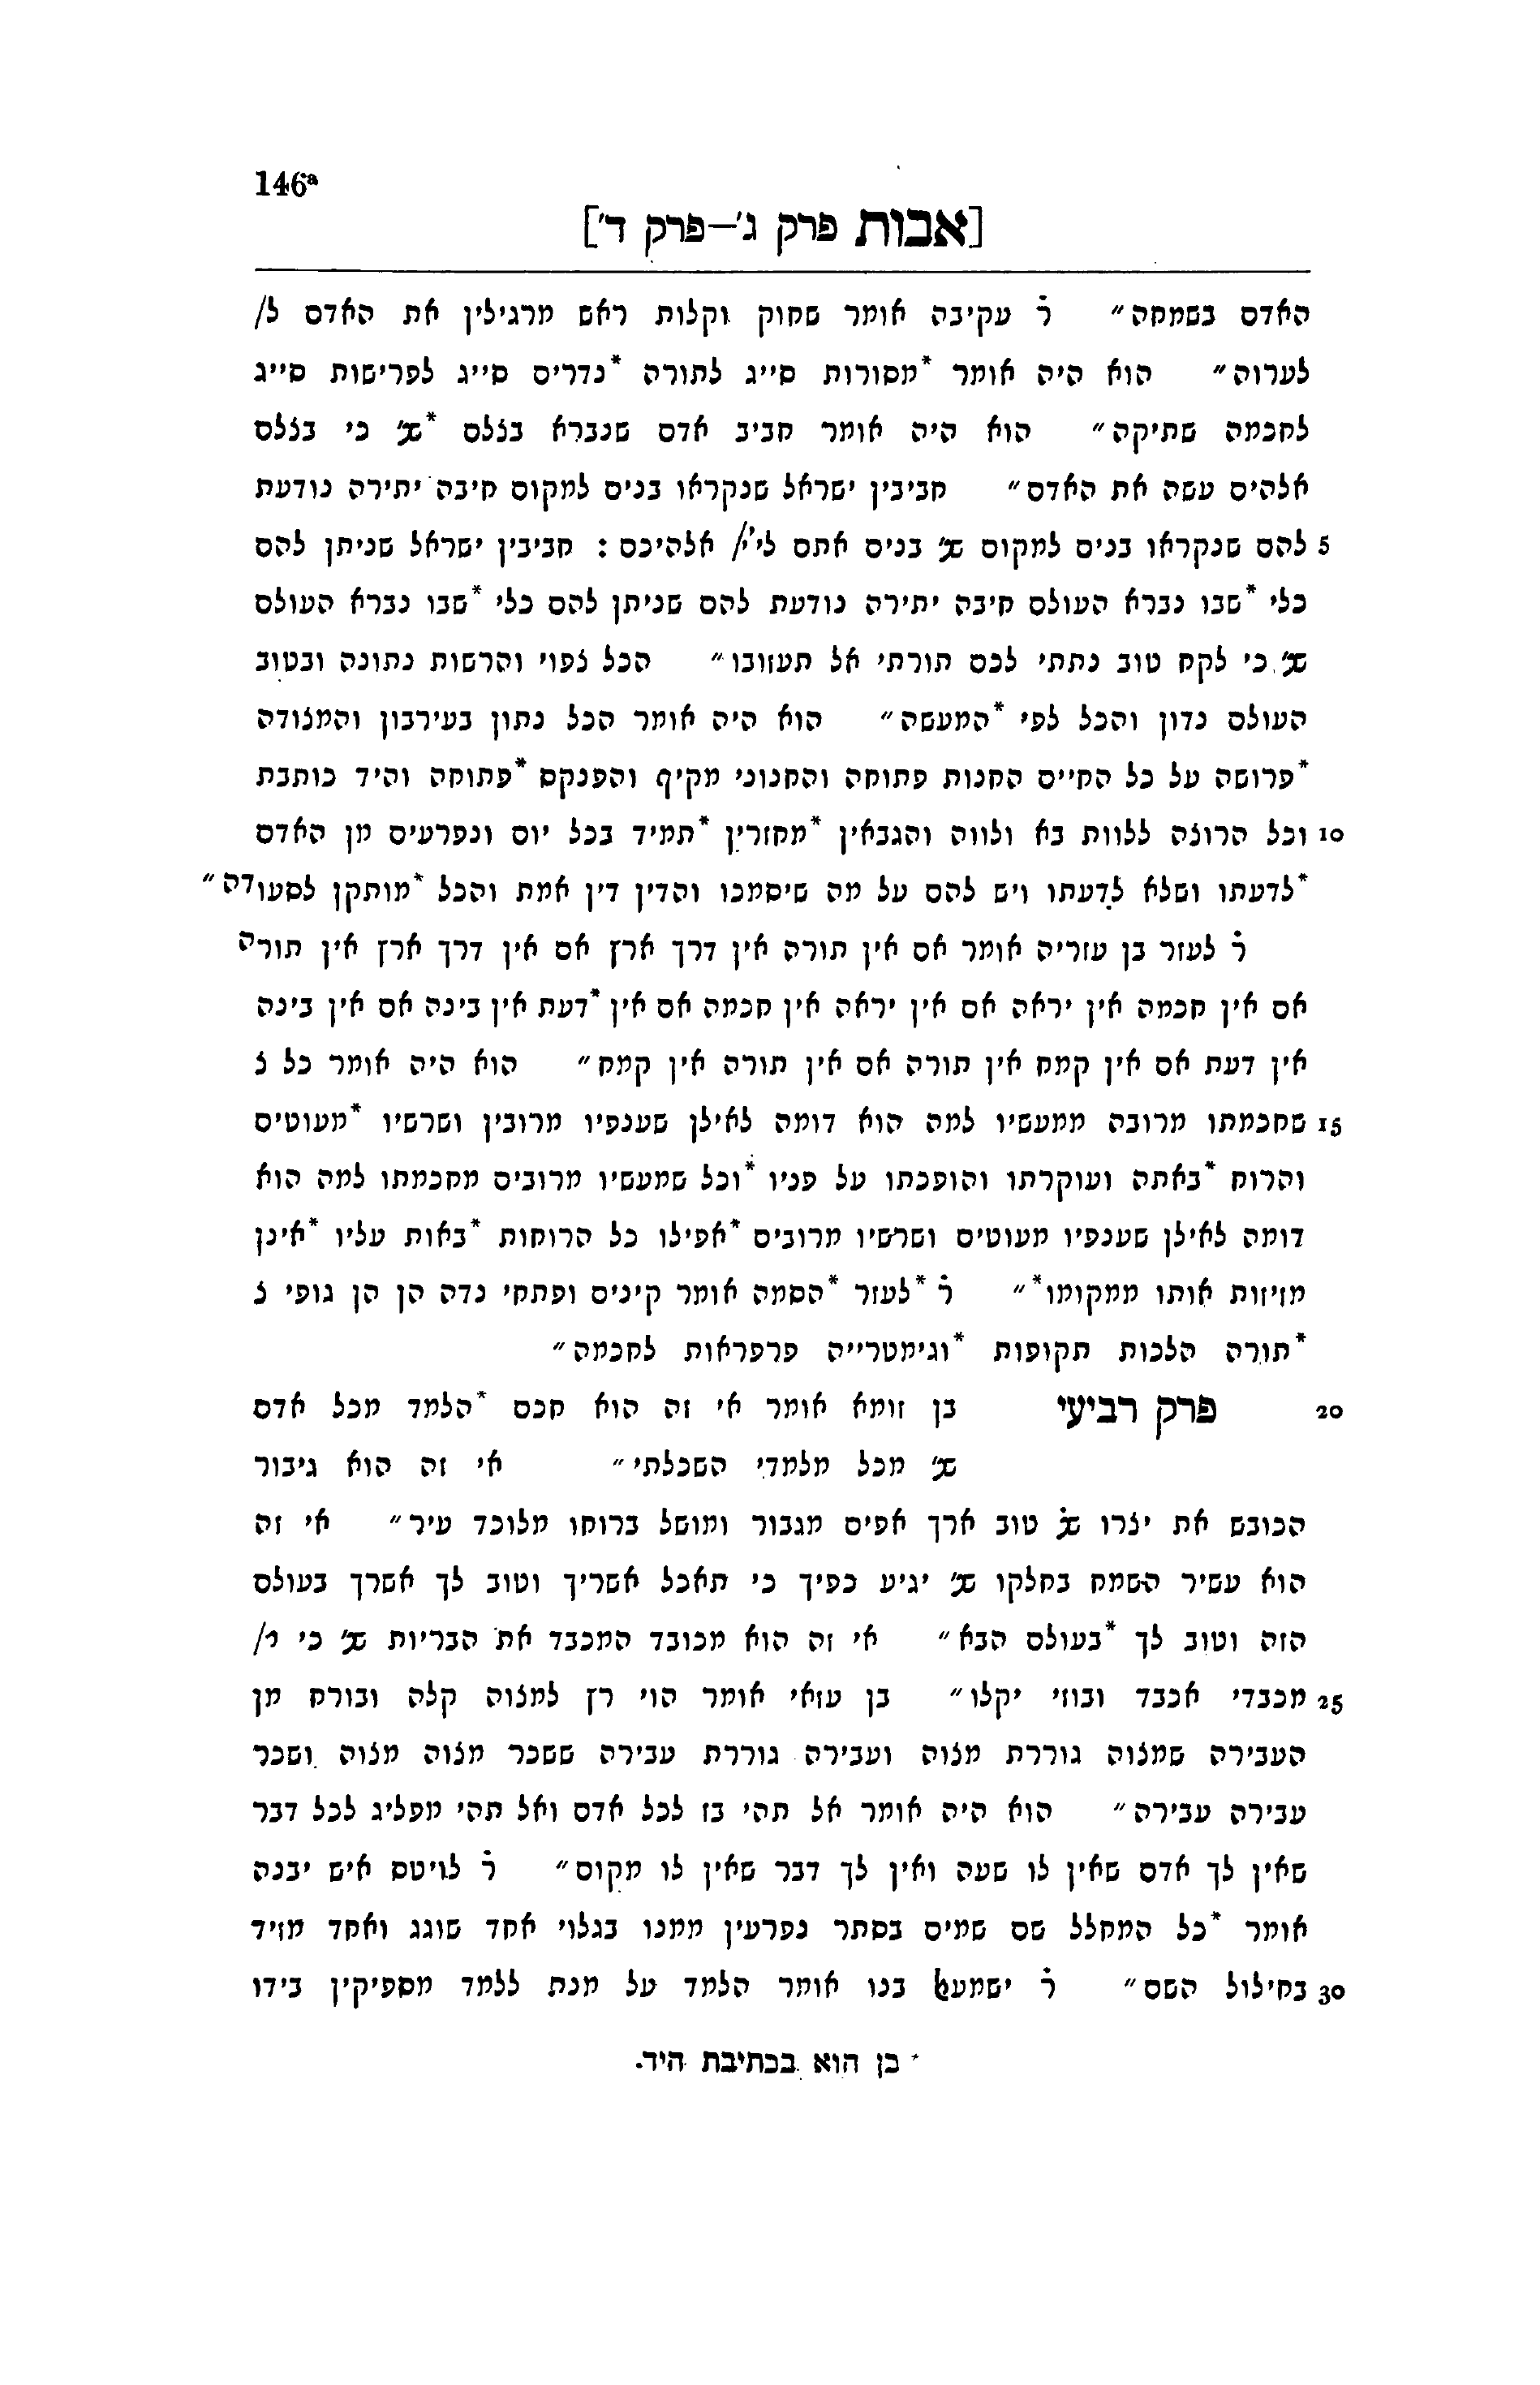 146a
[אבות פרק ג׳—פרק ד׳]
האדם בשמחה״ ר׳ עקיבה אומר שחוק וקלות ראש מרגילין את האדם ל/
לערוה״ הוא היה אומר *מסורות סייג לתורה *נדרים סייג לפרישות סייג
לחכמה שתיקה״ הוא היה אומר חביב אדם שנברא בצלם *שנ׳ כי בצלם
אלהים עשה את האדם״ חביבין ישראל שנקראו בנים למקום חיבה יתירה נודעת
5 להם שנקראו בנים למקום שנ׳ בנים אתם לי׳י/ אלהיכם : חביבין ישראל שניתן להם
כלי *שבו נברא העולם חיבה יתירה נודעת להם שניתן להם כלי *שבו נברא העולם
שנ׳ כי לקח טוב נתתי לכם תורתי אל תעזובו״ הכל צפוי והרשות נתונה ובטוב
העולם נדון והכל לפי *המעשה״ הוא היה אומר הכל נתון בעירבון והמצודה
*פרושה על כל החיים החנות פתוחה והחנוני מקיף והפנקס *פתוחה והיד כותבת
10 וכל הרוצה ללוות בא ולווה והגבאין *מחזרין *תמיד בכל יום ונפרעים מן האדם
*לדעתו ושלא לדעתו ויש להם על מה שיסמכו והדין דין אמת והכל *מותקן לסעודה״
ר׳ לעזר בן עזריה אומר אם אין תורה אין דרך ארץ אם אין דרך ארץ אין תורה
אם אין חכמה אין יראה אם אין יראה אין חכמה אם אין *דעת אין בינה אם אין בינה
אין דעת אם אין קמח אין תורה אם אין תורה אין קמח״ הוא היה אומר כל צ
15 שחכמתו מרובה ממעשיו למה הוא דומה לאילן שענפיו מרובין ושרשיו *מעוטים
והרוח *באתה ועוקרתו והופכתו על פניו *וכל שמעשיו מרובים מחכמתו למה הוא
דומה לאילן שענפיו מעוטים ושרשיו מרובים *אפילו כל הרוחות *באות עליו *אינן
מזיזות אותו ממקומו*״ ר׳ *לעזר *הסמה אומר קינים ופתחי נדה הן הן גופי צ
*תורה הלכות תקופות *וגימטרייה פרפראות לחכמה״
20 פרק רביעי בן זומא אומר אי זה הוא חכם *הלמד מכל אדם
שנ׳ מכל מלמדי השכלתי״ אי זה הוא גיבור
הכובש את יצרו שנ׳ טוב ארך אפים מגבור ומושל ברוחו מלוכד עיר״ אי זה
הוא עשיר השמח בחלקו שנ׳ יגיע כפיך כי תאכל אשריך וטוב לך אשרך בעולם
הזה וטוב לך *בעולם הבא״ אי זה הוא מכובד המכבד את הבריות שנ׳ כי ר/
25 מכבדי אכבד ובוזי יקלו״ בן עזאי אומר הוי רץ למצוה קלה ובורח מן
העבירה שמצוה גוררת מצוה ועבירה גוררת עבירה ששכר מצוה מצוה ושכר
עבירה עבירה״ הוא היה אומר אל תהי בז לכל אדם ואל תהי מפליג לכל דבר
שאין לך אדם שאין לו שעה ואין לך דבר שאין לו מקום״ ר׳ לויטס איש יבנה
אומר *כל המחלל שם שמים בסתר נפרעין ממנו בגלוי אחד שוגג ואחד מזיד
30 בחילול השם״ ר׳ ישמעאל בנו אומר הלמד על מנת ללמד מספיקין בידו
* כן הוא בכתיבת היד.